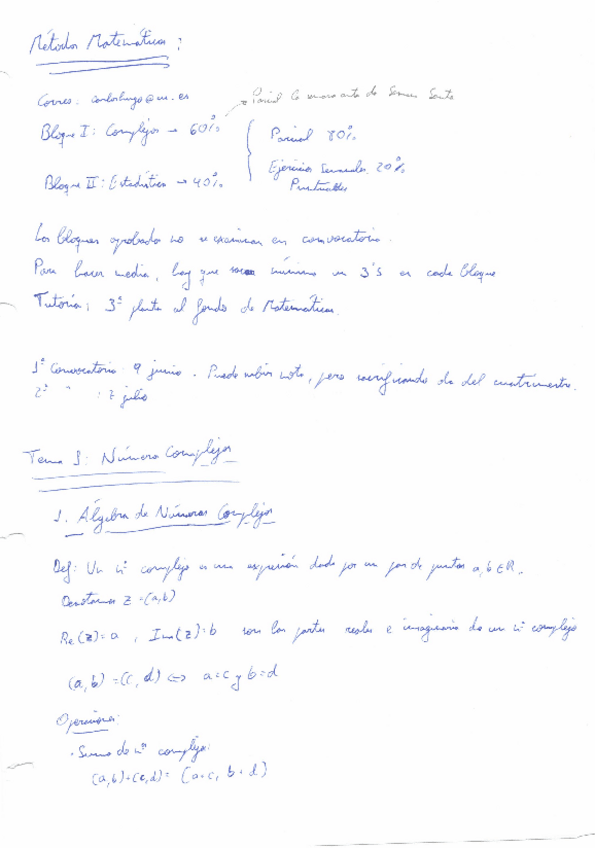 Métodos Matemáticos:
Correo: carloshugo@us.es
Parcial antes de Semana Santa
Bloque I: Complejos → 60%
Parcial 80%
Ejercicios Semanales 20%
Puntuables
Bloque II: Estadística → 40%
Los bloques aprobado no se examinan en convocatoria.
Para hacer media, hay que mínimo un 3'5 en cada bloque
Tutoría: 3ª planta al fondo de Matemáticas.
1ª Convocatoria 9 junio. Puedo subir nota, pero sacrificando la del cuatrimestre.
2ª " : 7 julio
Tema 1: Números Complejos
1. Álgebra de Números Complejos
Def: Un nº complejo es una expresión dada por un par de puntos a,b∈ℝ.
Denotamos z=(a,b)
Re(z)=a, Im(z)=b son las partes reales e imaginaria de un nº complejo
(a,b)=(c,d) ⇔ a=c y b=d
Operaciones:
· Suma de nº complejo:
(a,b)+(c,d)= (a+c, b+d)